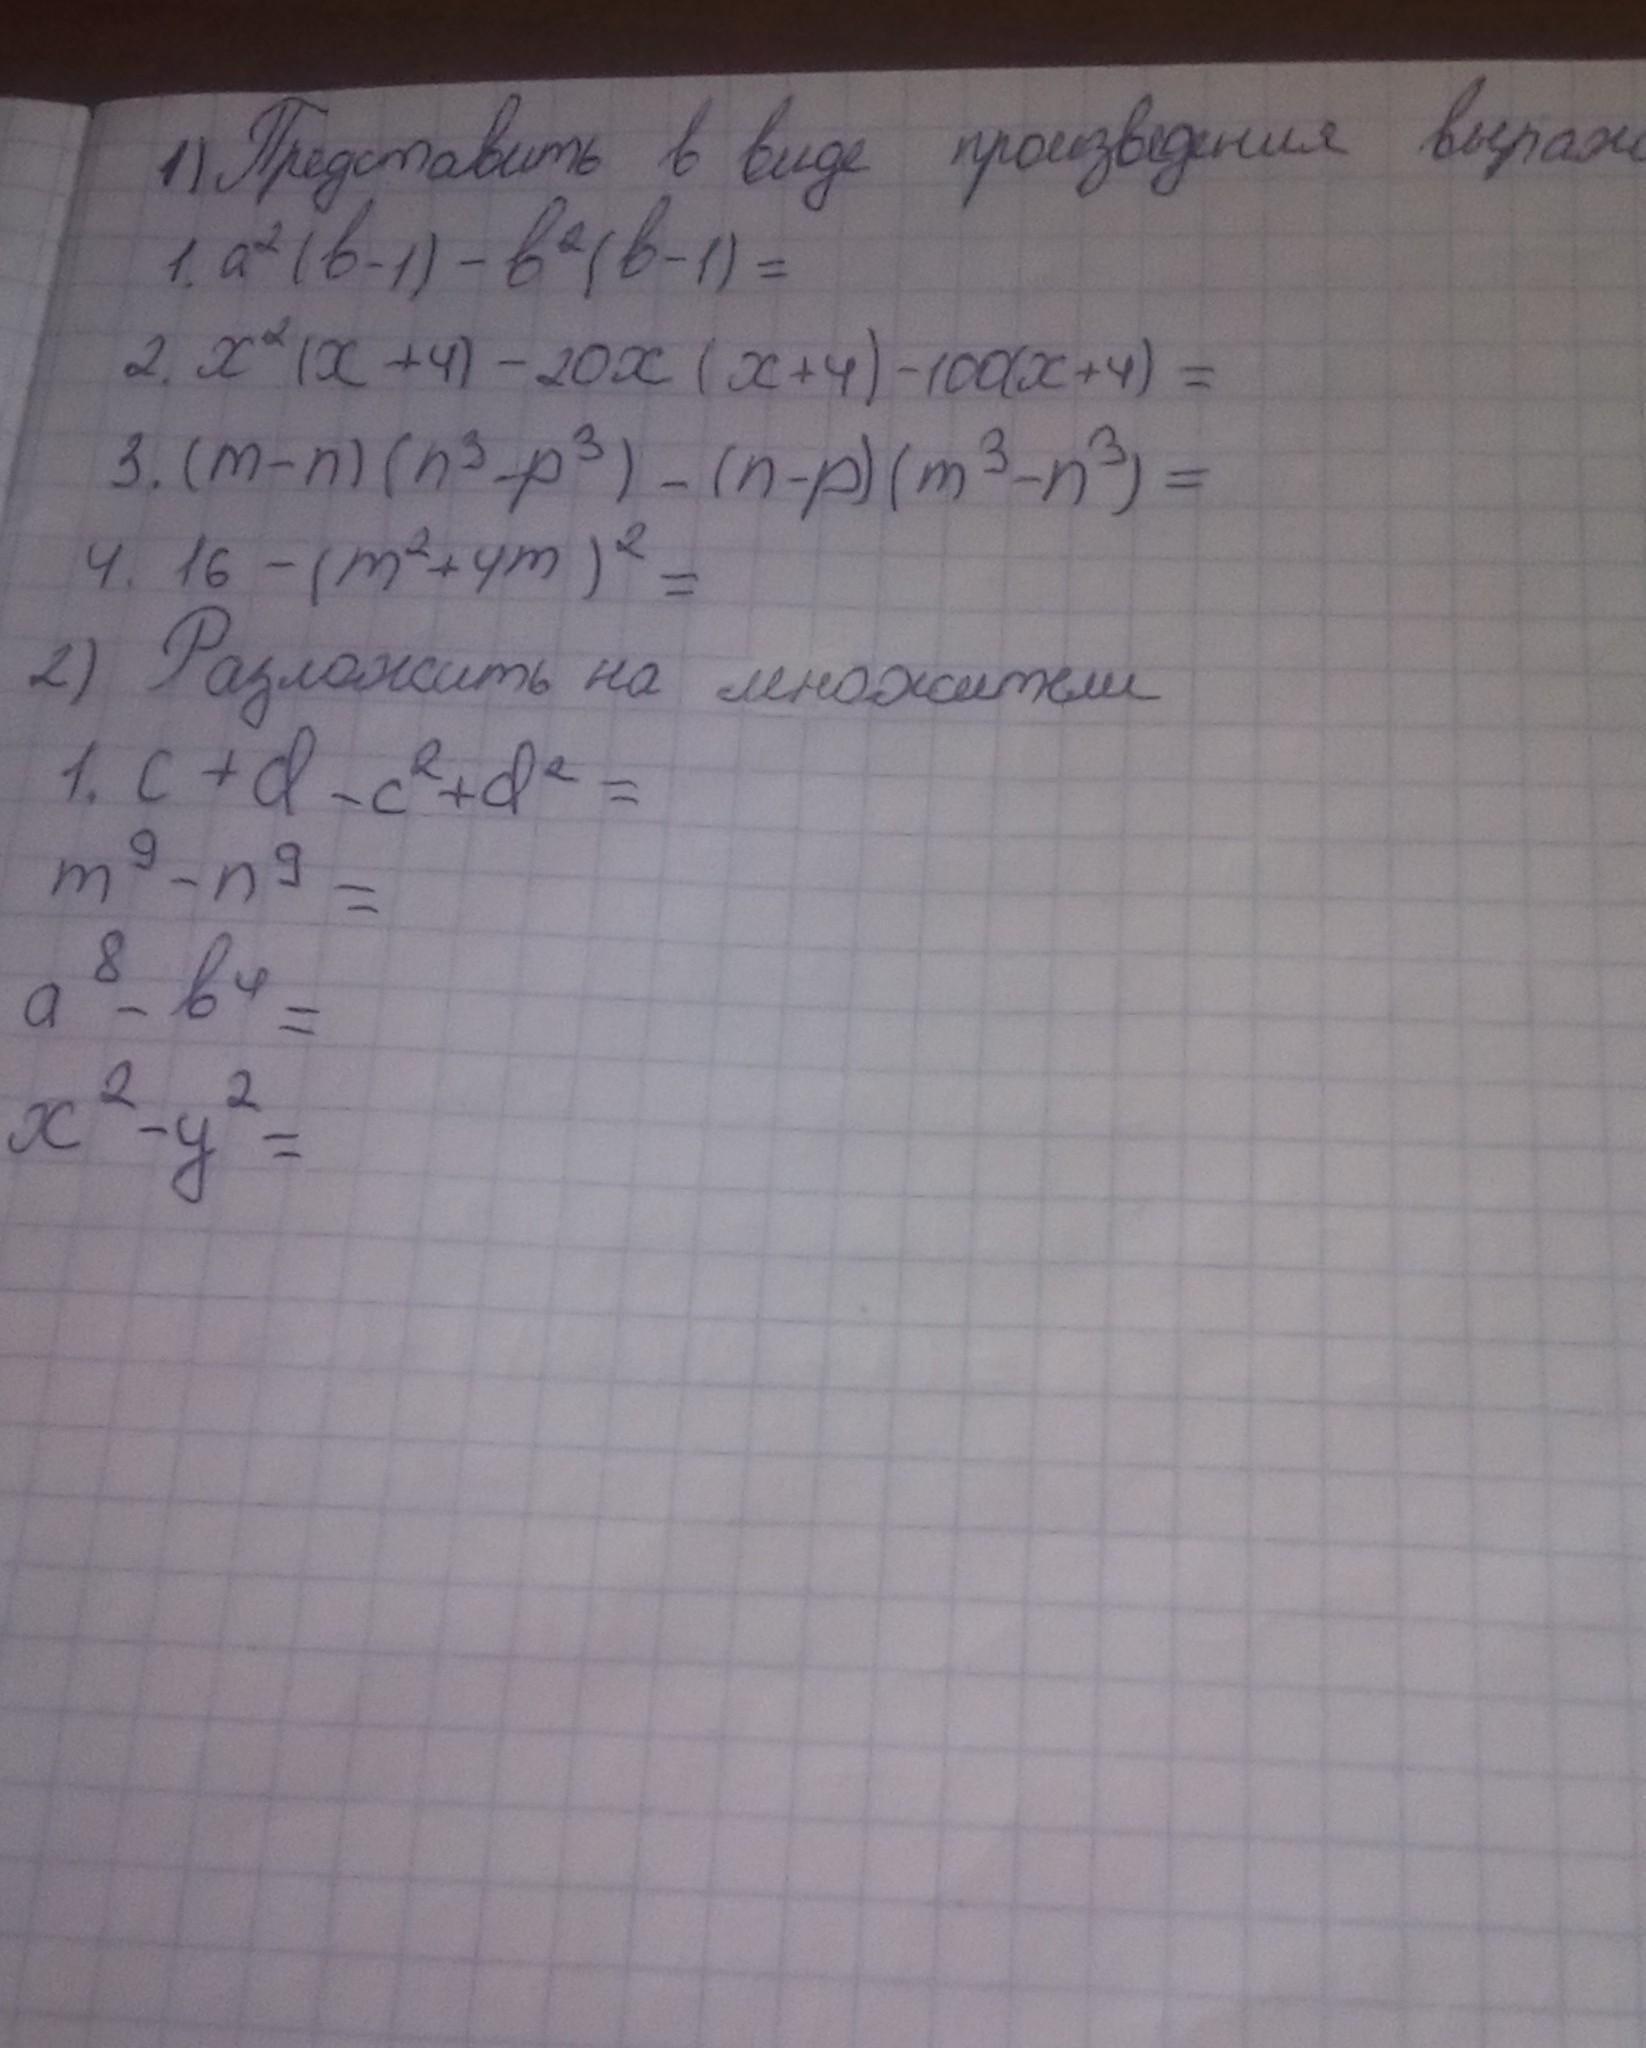 1) Представить в виде произведения выраже
1. a²(b-1)-b²(b-1)=
2. x²(x+4)-20x(x+4)-100(x+4)=
3. (m-n)(n³-p³)-(n-p)(m³-n³)=
4. 16-(m²+4m)²=
2) Разложить на множители
1. c+d-c²+d²=
m⁹-n⁹=
a⁸-b⁴=
x²-y²=